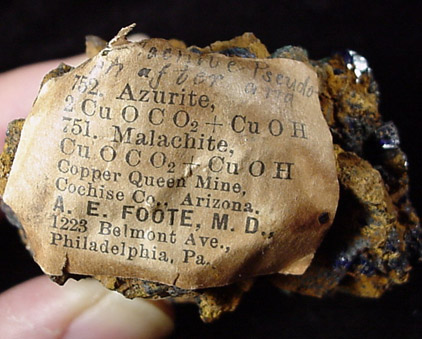 Pseudo
after
752. Azurite,
2 Cu O C O2 + Cu O H
751. Malachite,
Cu O C O2 + Cu O H
Copper Queen Mine,
Cochise Co., Arizona.
A. E. FOOTE, M. D.,
1223 Belmont Ave.,
Philadelphia, Pa.